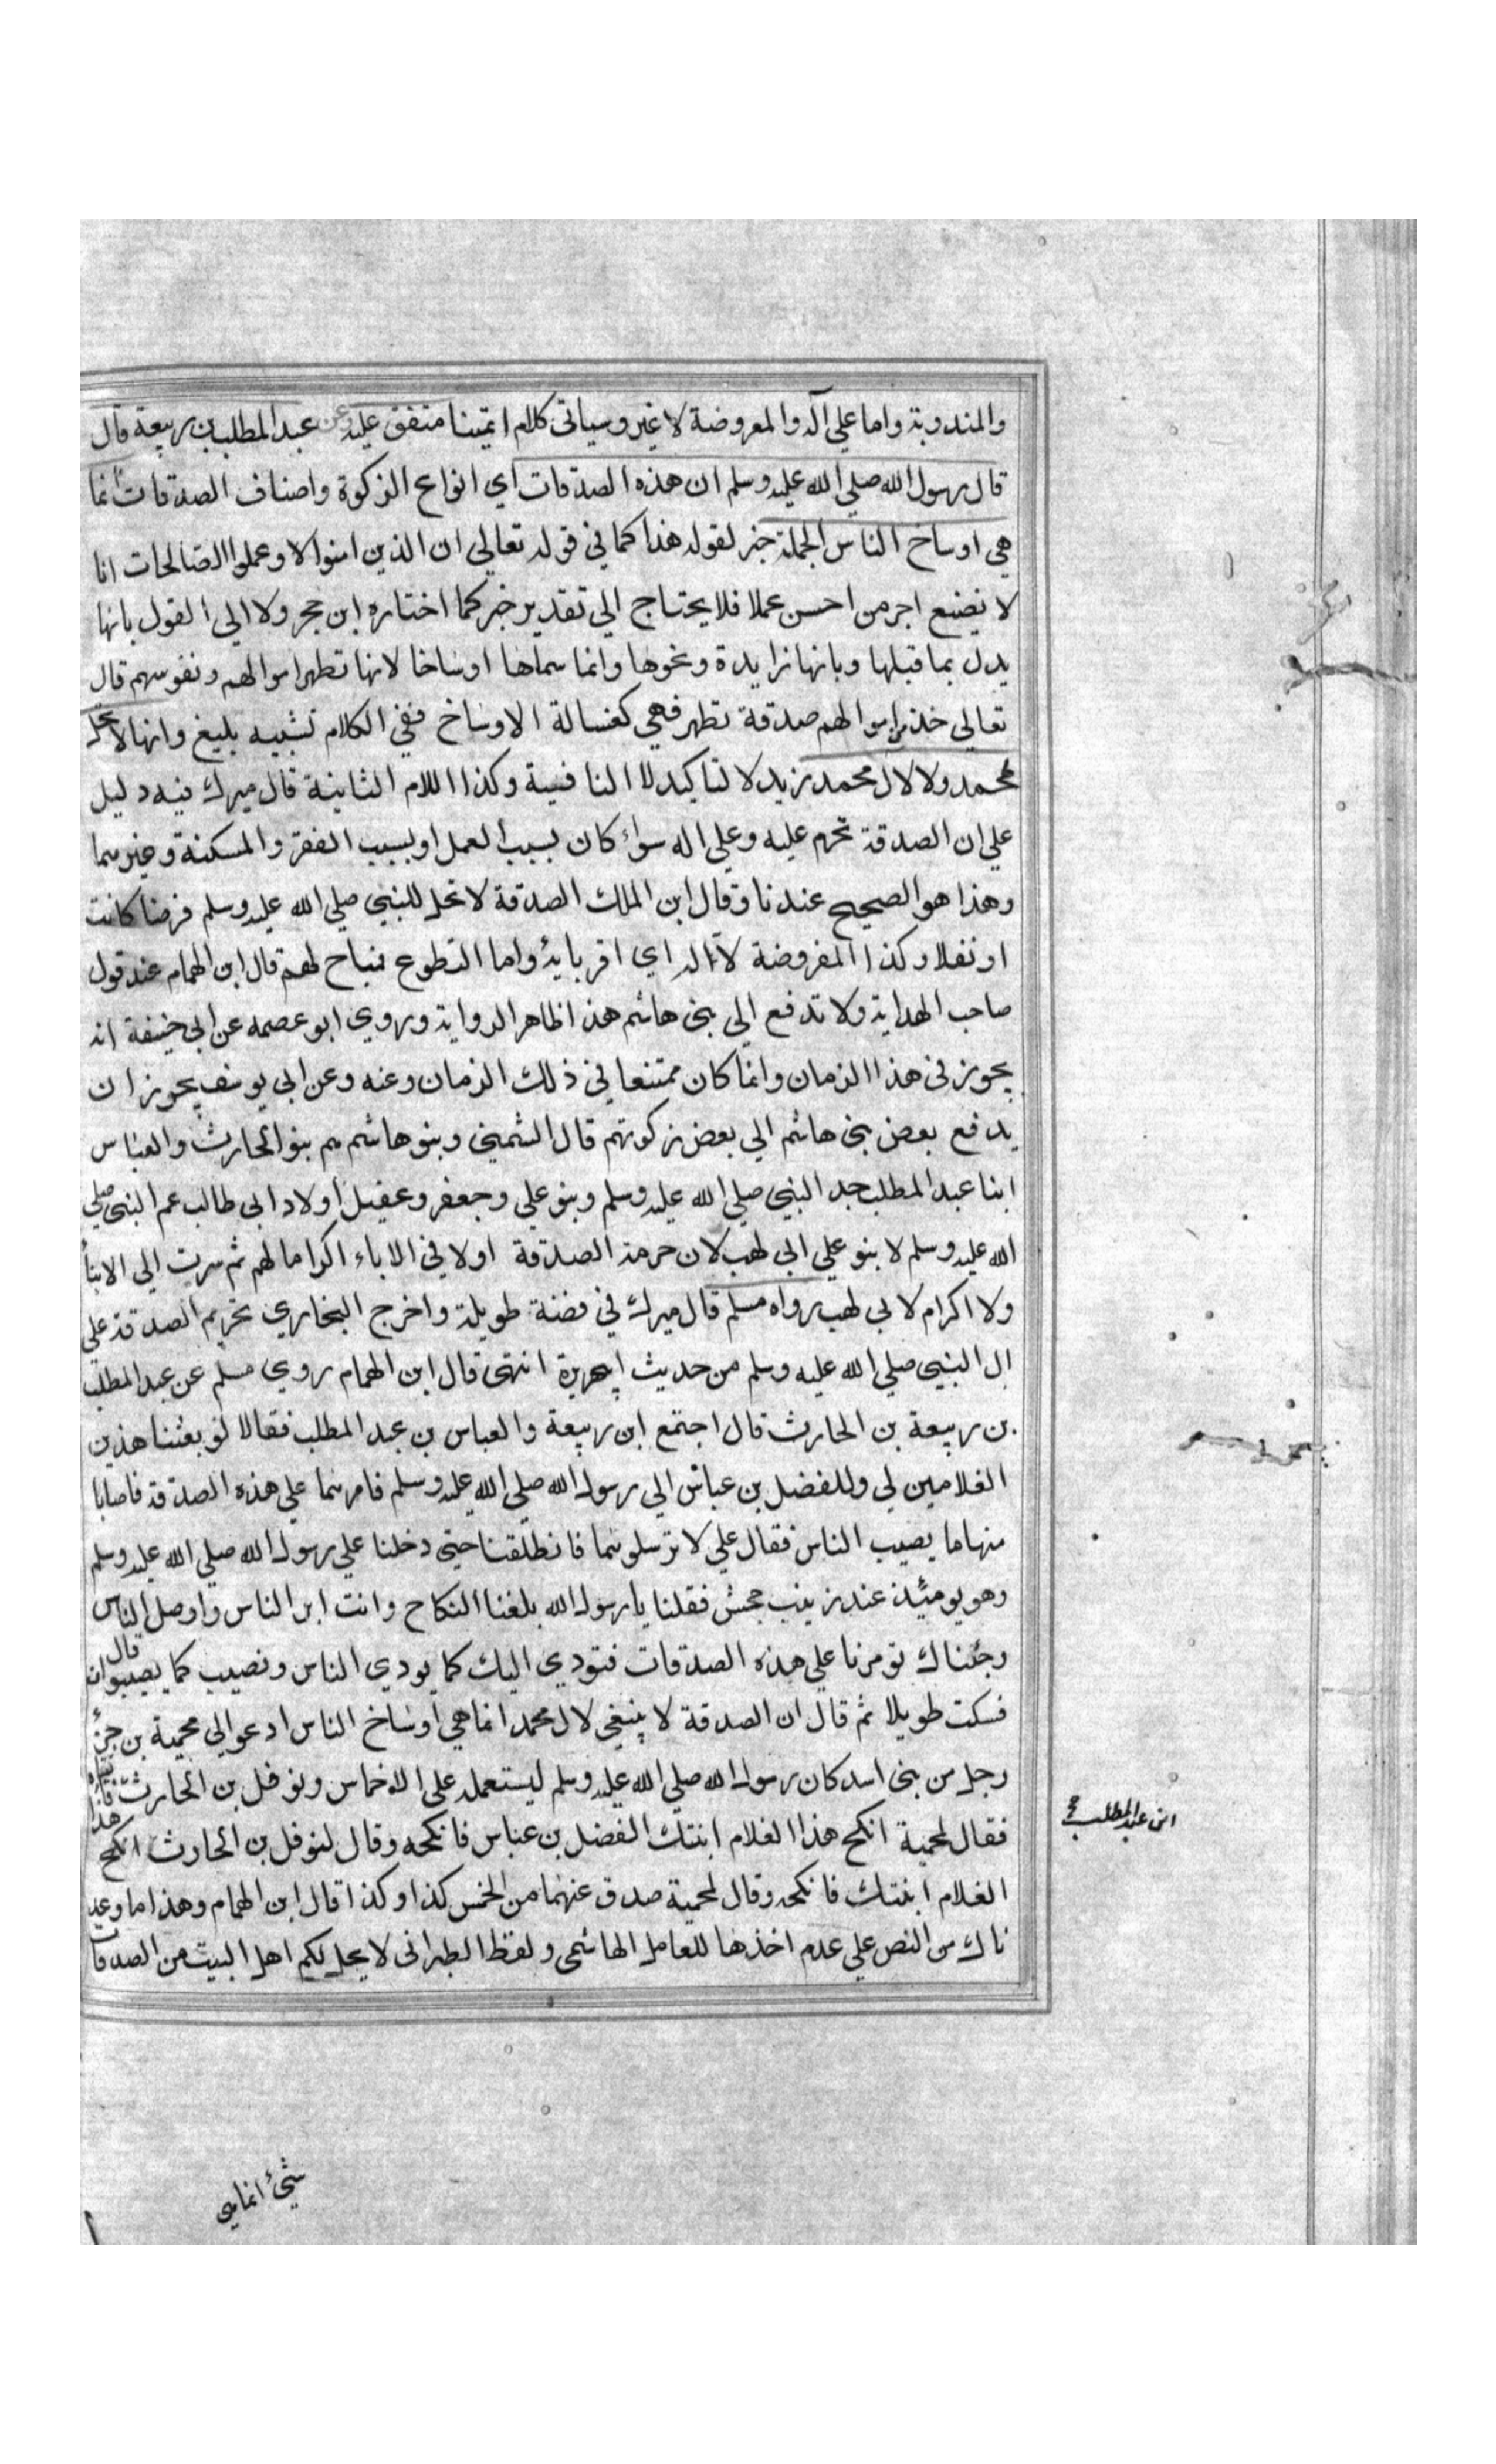 والمندوبة واما علي آله والمعروضة لا غير وسياتى كلام ايمتينا متفق عليه وعن عبد المطلب بن ربيعة قال
قال رسول الله صلي الله عليه وسلم ان هذه الصدقات اي انواع الزكوة واصناف الصدقات انما
هي اوساخ الناس الجملة خبر لقوله هذا كما في قوله تعالي ان الذين امنوا الا وعملوا الصالحات انا
لا نضيع اجر من احسن عملا فلا يحتاج الي تقدير خبر كما اختاره ابن حجر ولا الي القول بانها
بدل بما قبلها وبانها زايدة ونحوها وانما سماها اوساخا لانها تطهر اموالهم ونفوسهم قال
تعالى خذ من اموالهم صدقة تطهر فهي كغسالة الاوساخ ففي الكلام تشبيه بليغ وانها لا تحل
لمحمد ولا لال محمد زيد لا لتاكيد لا النافية وكذا اللام الثانية قال ميرك فيه دليل
علي ان الصدقة تحرم عليه وعلي اله سواء كان بسبب العمل او بسبب الفقر والمسكنة وغيرهما
وهذا هو الصحيح عندنا وقال ابن الملك الصدقة لا تحل للنبي صلي الله عليه وسلم فرضا كانت
او نفلا وكذا المفروضة لآله اي اقربايه واما التطوع فباح لهم قال ابن الهمام عند قول
صاحب الهداية ولا تدفع الي بنى هاشم هذا ظاهر الرواية وروي ابو عصمه عن ابي حنيفة انه
يجوز في هذا الزمان وانما كان ممتنعا في ذلك الزمان وعنه وعن ابي يوسف يجوز ان
يدفع بعض بنى هاشم الي بعض زكوتهم قال الشمني وبنو هاشم هم بنو الحارث والعباس
ابنا عبد المطلب جد النبي صلي الله عليه وسلم وبنو علي وجعفر وعقيل اولاد ابى طالب عم النبي صلي
الله عليه وسلم لا بنو علي ابي لهب لان حرمة الصدقة اولا في الاباء اكراما لهم ثم سرت الي الابناء
ولا اكرام لابي لهب رواه مسلم قال ميرك في قصة طويلة واخرج البخاري تحريم الصدقة علي
ال النبي صلي الله عليه وسلم من حديث ابهريرة انتهى قال ابن الهمام روي مسلم عن عبد المطلب
بن ربيعة بن الحارث قال اجتمع ابن ربيعة والعباس بن عبد المطلب فقالا لو بعثنا هذين
الغلامين لي وللفضل بن عباس الي رسول الله صلي الله عليه وسلم فامرهما علي هذه الصدقة فاصابا
منها ما يصيب الناس فقال علي لا ترسلوهما فانطلقنا حتى دخلنا علي رسول الله صلي الله عليه وسلم
وهو يوميئذ عند زينب جحش فقلنا يا رسول الله بلغنا النكاح وانت ابر الناس واوصل الناس
وجئناك تومرنا علي هذه الصدقات فتودي اليك كما يودي الناس ونصيب كما يصيبوان قال
فسكت طويلا ثم قال ان الصدقة لا ينبغي لال محمد انما هي اوساخ الناس ادعو الي محمية بن جزء
رجل من بنى اسد كان رسول الله صلي الله عليه وسلم ليستعمله علي الاخماس ونوفل بن الحارث فاتياه
فقال لمحمية انكح هذا الغلام ابنتك الفضل بن عباس فانكحه وقال لنوفل بن الحارث انكح هذا
الغلام ابنتك فانكحه وقال لمحمية صدق عنهما من الخمس كذا وكذا قال ابن الهمام وهذا ما وعد
ناك من النص علي عدم اخذها للعامل الهاشمى ولفظ الطبرانى لا يحل لكم اهل البيت من الصدقات
ابن عبد المطلب
شيئ انماهي